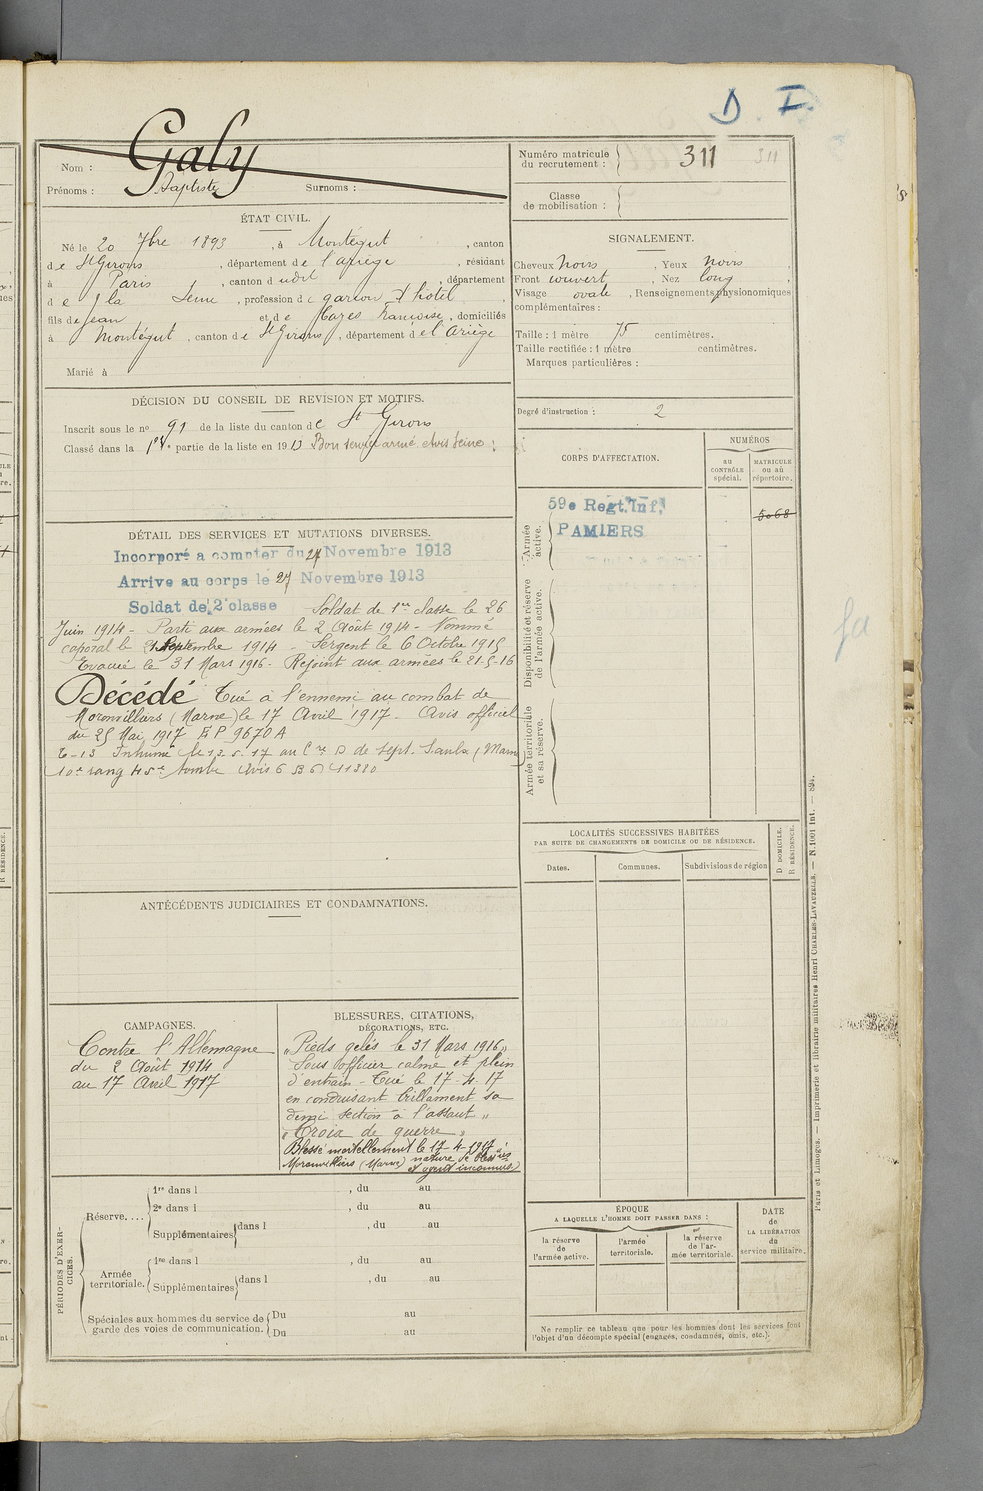 D. I
Nom : Galy
Prénoms : Baptiste Surnoms :
Numéro matricule du recrutement : 311 311
Classe de mobilisation :
ÉTAT CIVIL.
Né le 20 7bre 1893, à Montégut, canton
de St Girons, département de l'ariège, résidant
à Paris, canton d udit, département
de la Seine, profession de garçon d'hôtel,
fils de Jean et de Hazes Françoise, domiciliés
à Montégut, canton de St Girons, département de l'Ariège
Marié à
SIGNALEMENT.
Cheveux noirs, Yeux noirs,
Front couvert, Nez long,
Visage ovale, Renseignements physionomiques
complémentaires :
Taille : 1 mètre 75 centimètres.
Taille rectifiée : 1 mètre centimètres.
Marques particulières :
Degré d'instruction : 2
DÉCISION DU CONSEIL DE REVISION ET MOTIFS.
Inscrit sous le no 91 de la liste du canton de St Girons
Classé dans la 1re partie de la liste en 1913 Bon service armé
CORPS D'AFFECTATION.
NUMÉROS
au CONTRÔLE spécial.
MATRICULE ou au répertoire.
Armée active.
59e Regt. Inf.
PAMIERS
5068
Disponibilité et réserve de l'armée active.
Armée territoriale et sa réserve.
DÉTAIL DES SERVICES ET MUTATIONS DIVERSES.
Incorporé a compter du 27 Novembre 1913
Arrive au corps le 27 Novembre 1913
Soldat de 2e classe Soldat de 1re classe le 26
Juin 1914 - Parti aux armées le 2 Août 1914 - Nommé
caporal le 21 Septembre 1914 - Sergent le 6 Octobre 1915
Evacué le 31 Mars 1916 - Rejoint aux armées le 21-5-16
Décédé Tué à l'ennemi au combat de
Moronvilliers (Marne) le 17 Avril 1917 - Avis officiel
du 25 Mai 1917 E P 9670 A
6-13 Inhumé le 13.5.17 au Cre D de Sept. Saulx (Marne)
10e rang 45e tombe Avis 6 B 6 C 11380
LOCALITÉS SUCCESSIVES HABITÉES
PAR SUITE DE CHANGEMENTS DE DOMICILE OU DE RÉSIDENCE.
Dates.
Communes.
Subdivisions de région
D DOMICILE. R RÉSIDENCE.
ANTÉCÉDENTS JUDICIAIRES ET CONDAMNATIONS.
CAMPAGNES.
Contre l'Allemagne
du 2 Août 1914
au 17 Avril 1917
BLESSURES, CITATIONS,
DÉCORATIONS, ETC.
"Pieds gelés le 31 Mars 1916"
"Sous officier calme et plein
d'entrain - Tué le 17-4-17
en conduisant brillament sa
demi section à l'assaut"
"Croix de guerre"
Blessé mortellement le 17-4-1917 à
Moronvilliers (Marne) nature de blessures
et agent inconnus.
PÉRIODES D'EXERCICES.
Réserve....
1re dans l , du au
2e dans l , du au
Supplémentaires dans l , du au
Armée territoriale.
1re dans l , du au
Supplémentaires dans l , du au
Spéciales aux hommes du service de garde des voies de communication.
Du au
Du au
ÉPOQUE
A LAQUELLE L'HOMME DOIT PASSER DANS :
la réserve de l'armée active.
l'armée territoriale.
la réserve de l'armée territoriale.
DATE de LA LIBÉRATION du service militaire.
Ne remplir ce tableau que pour les hommes dont les services font
l'objet d'un décompte spécial (engagés, condamnés, omis, etc.).
Paris et Limoges. — Imprimerie et librairie militaires Henri CHARLES-LAVAUZELLE. — N. 1001 Int. — 894.